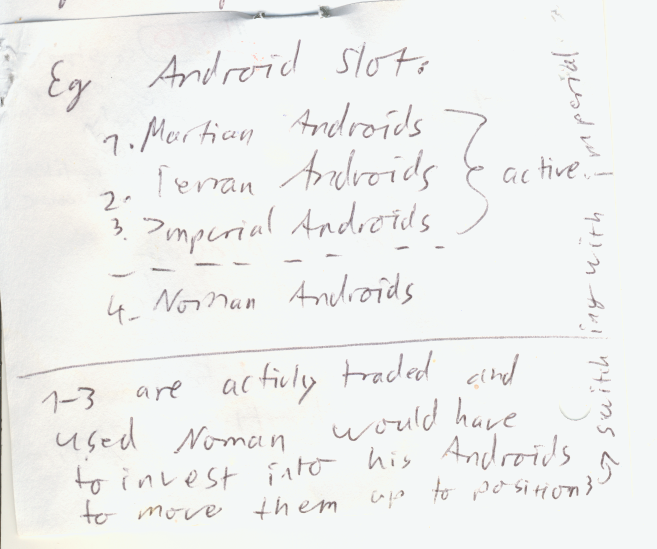 Eg Android Slot:
1. Martian Androids
2. Terran Androids
3. Imperial Androids
active
4. Norman Androids
1-3 are activly traded and
used Noman would have
to invest into his Androids
to move them up to position 3
switching with imperial